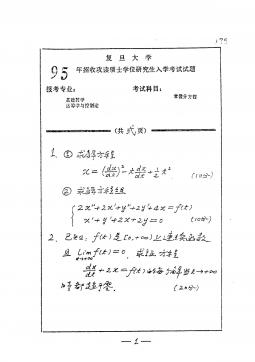 复旦大学
95年招收攻读硕士学位研究生入学考试试题
报考专业： 考试科目：
基础数学 常微分方程
运筹学与控制论
(共 页)
1. ① 求解方程
x = (dx/dt)² - t dx/dt + 1/2 t² (10分)
② 求解方程组
{ 2x''+2x'+y''+2y'+4x = f(t)
x'+y'+2x+2y = 0 (10分)
2. 已知：f(t)是[0,+∞)上连续函数
且 lim f(t)=0. 求证方程
dx/dt + 2x = f(t) 的每个解当t→+∞
时都趋于零. (20分)
— 1 —